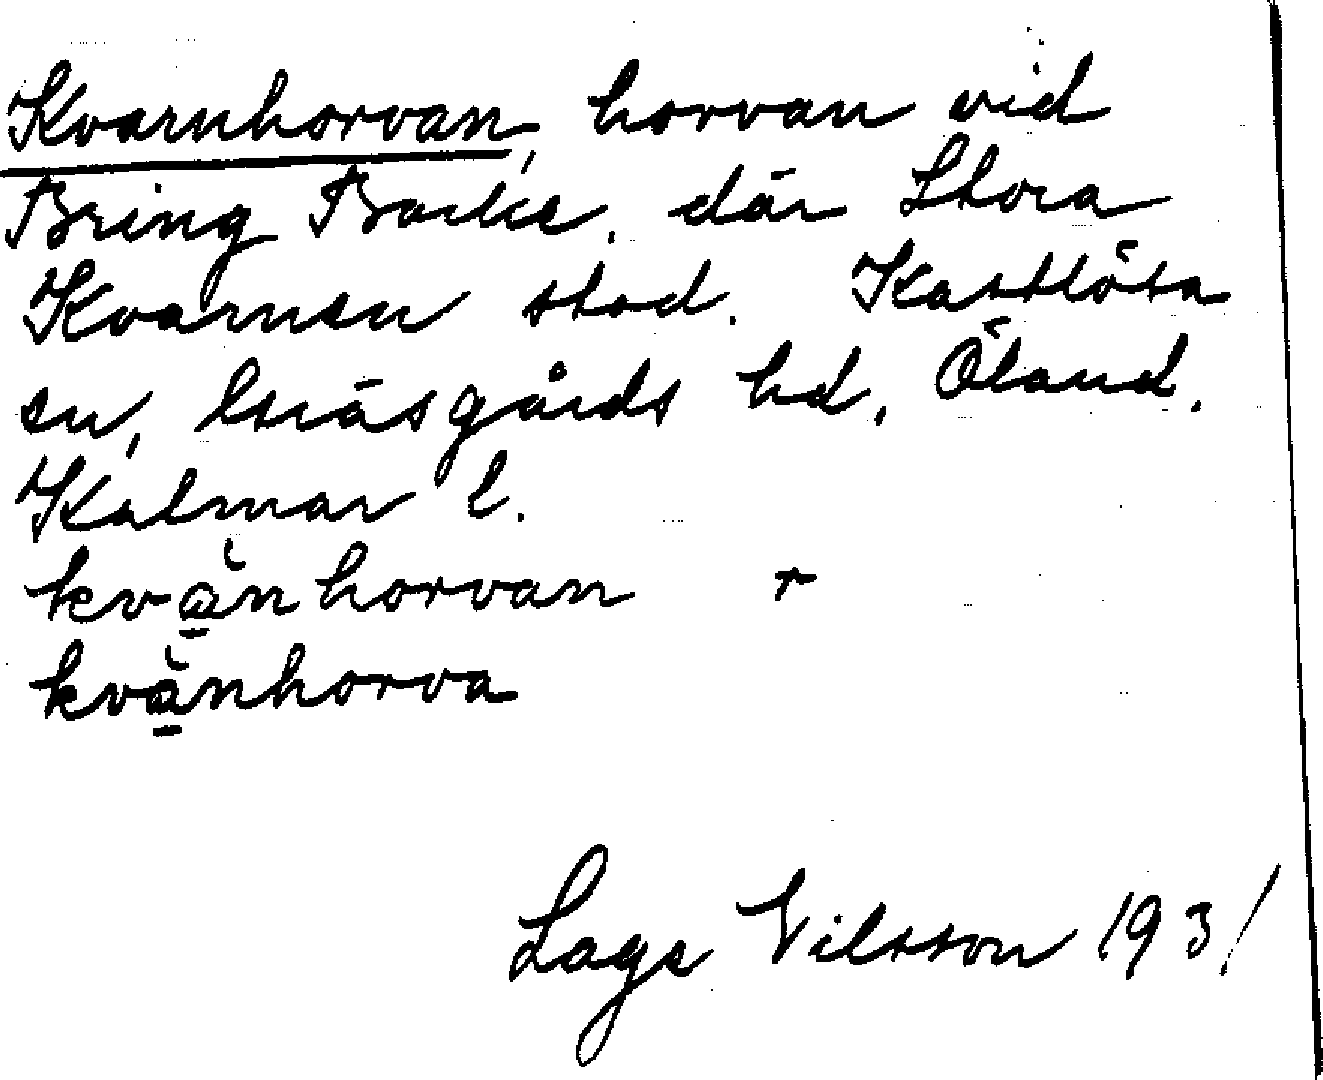 Kvarnhorvan, horvan vid
Bring Backe, där Stora
Kvarnen stod. Kastlösa
sn, Gräsgårds hd, Öland.
Kalmar l.
kvänhorvan r
kvänhorva
Lage Nilsson 1931